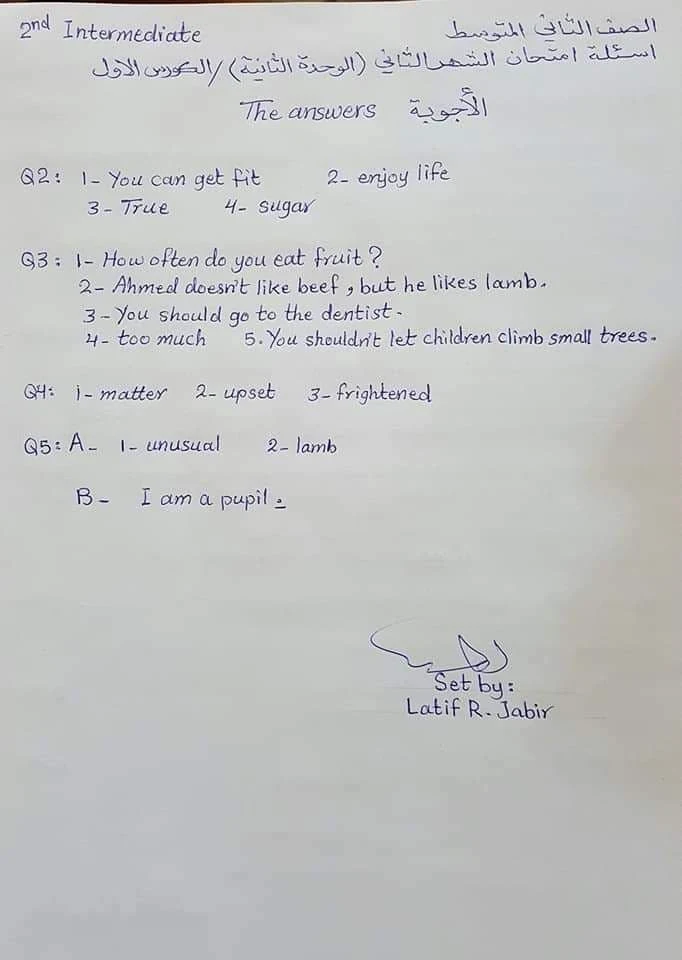 2nd Intermediate الصف الثاني المتوسط
اسئلة امتحان الشهر الثاني (الوحدة الثانية) / الكورس الاول
The answers الأجوبة
Q2: 1- You can get fit 2- enjoy life
3- True 4- sugar
Q3: 1- How often do you eat fruit?
2- Ahmed doesn't like beef, but he likes lamb.
3- You should go to the dentist.
4- too much 5. You shouldn't let children climb small trees.
Q4: 1- matter 2- upset 3- frightened
Q5: A- 1- unusual 2- lamb
B- I am a pupil.
Set by:
Latif R. Jabir